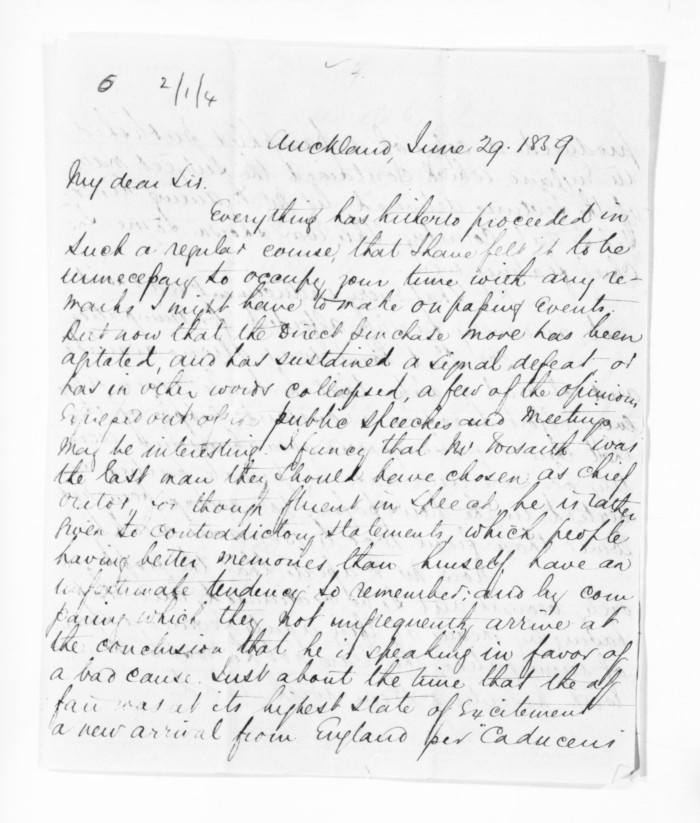 6 2/1/4
Auckland, June 29. 1859
My dear Sir.
Everything has hitherto proceeded in
such a regular course, that I have felt it to be
unnecessary to occupy your time with any re-
marks I might have to make on passing Events
But now that the Direct Purchase move has been
agitated, and has sustained a signal defeat or
has in other words collapsed, a few of the opinions
Expressed out of public speeches and Meetings
may be interesting. I fancy that Mr Forsaith was
the last man they should have chosen as chief
orator, for though fluent in speech, he is rather
given to contradictory statements, which people
having better memories than himself have an
unfortunate tendency to remember; and by com
paring which they not unfrequently arrive at
the conclusion that he is speaking in favor of
a bad cause. Just about the time that the af
fair was at its highest state of Excitement
a new arrival from England per "Caduceus